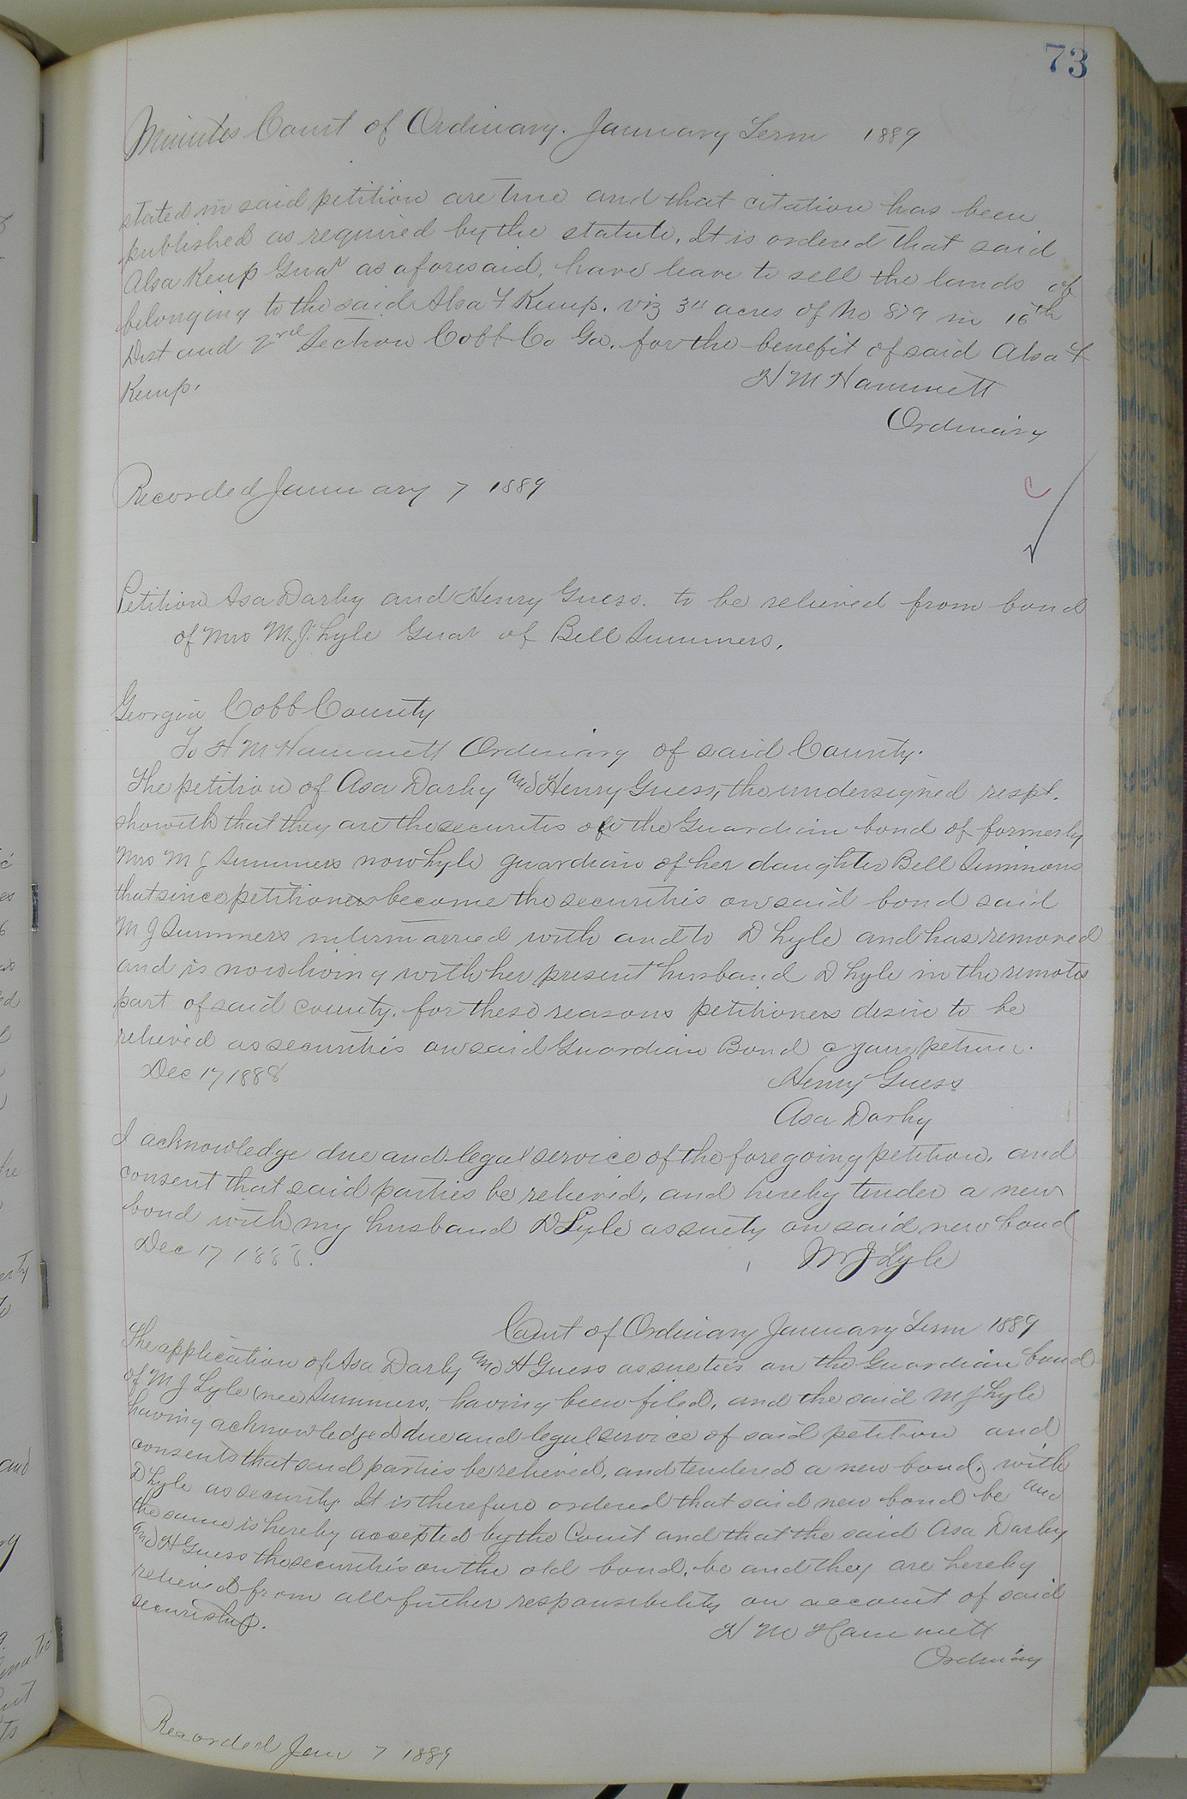 73
Minutes Court of Ordinary. January Term 1889
stated in said petition are true and that citation has been
published as required by the statute. It is ordered that said
Alsa Kemp Guar as aforesaid, have leave to sell the lands of
belonging to the said Alsa F Kemp. viz acres of No 879 in 16th
Dist and 2nd Section Cobb Co Ga. for the benefit of said Alsa F
Kemp.
H M Hammett
Ordinary
Recorded January 7 1889
Petition Asa Darby and Henry Guess. to be relieved from bond
of Mrs M. J. Lyle Guar of Bell Summers.
Georgia Cobb County
To H M Hammett Ordinary of said County.
The petition of Asa Darby and Henry Guess, the undersigned respt.
showeth that they are the securites of the Guardian bond of formerly
Mrs M J Summers now Lyle guardian of her daughter Bell Simmons
that since petitioners become the securities on said bond said
M J Summers intermarried with and to D Lyle and has removed
and is now living with her present husband D Lyle in the remotes
part of said county. for these reasons petitioners desire to be
relieved as securities on said Guardian Bond
Dec 17 1888
Henry Guess
Asa Darby
I acknowledge due and legal service of the foregoing petition, and
consent that said parties be relieved, and hereby tender a new
bond with my husband D Lyle as suety on said new bond
Dec 17 1888.
M J Lyle
Court of Ordinary January Term 1889
The application of Asa Darby and H Guess as sueties on the Guardian bond
of M J Lyle (nee) Summers, having been filed, and the said M J Lyle
having acknowledged due and legal service of said petition and
consents that said parties be relieved, and tendered a new bond, with
D Lyle as security. It is therefore ordered that said new bond be and
the same is hereby accepted by the Court and that the said Asa Darby
and H Guess the securities on the old bond, be and they are hereby
relieved from all further responsibility on account of said
securiship.
H M Hammett
Ordinary
Recorded Jan 7 1889